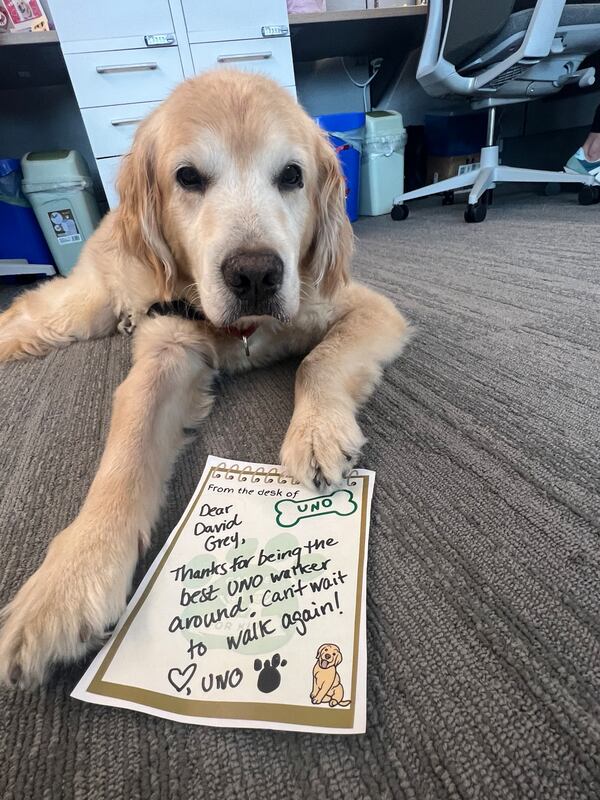 From the desk of
UNO
Dear
David
Grey,
Thanks for being the
best UNO walker
around! Can't wait
to walk again!
♡, UNO